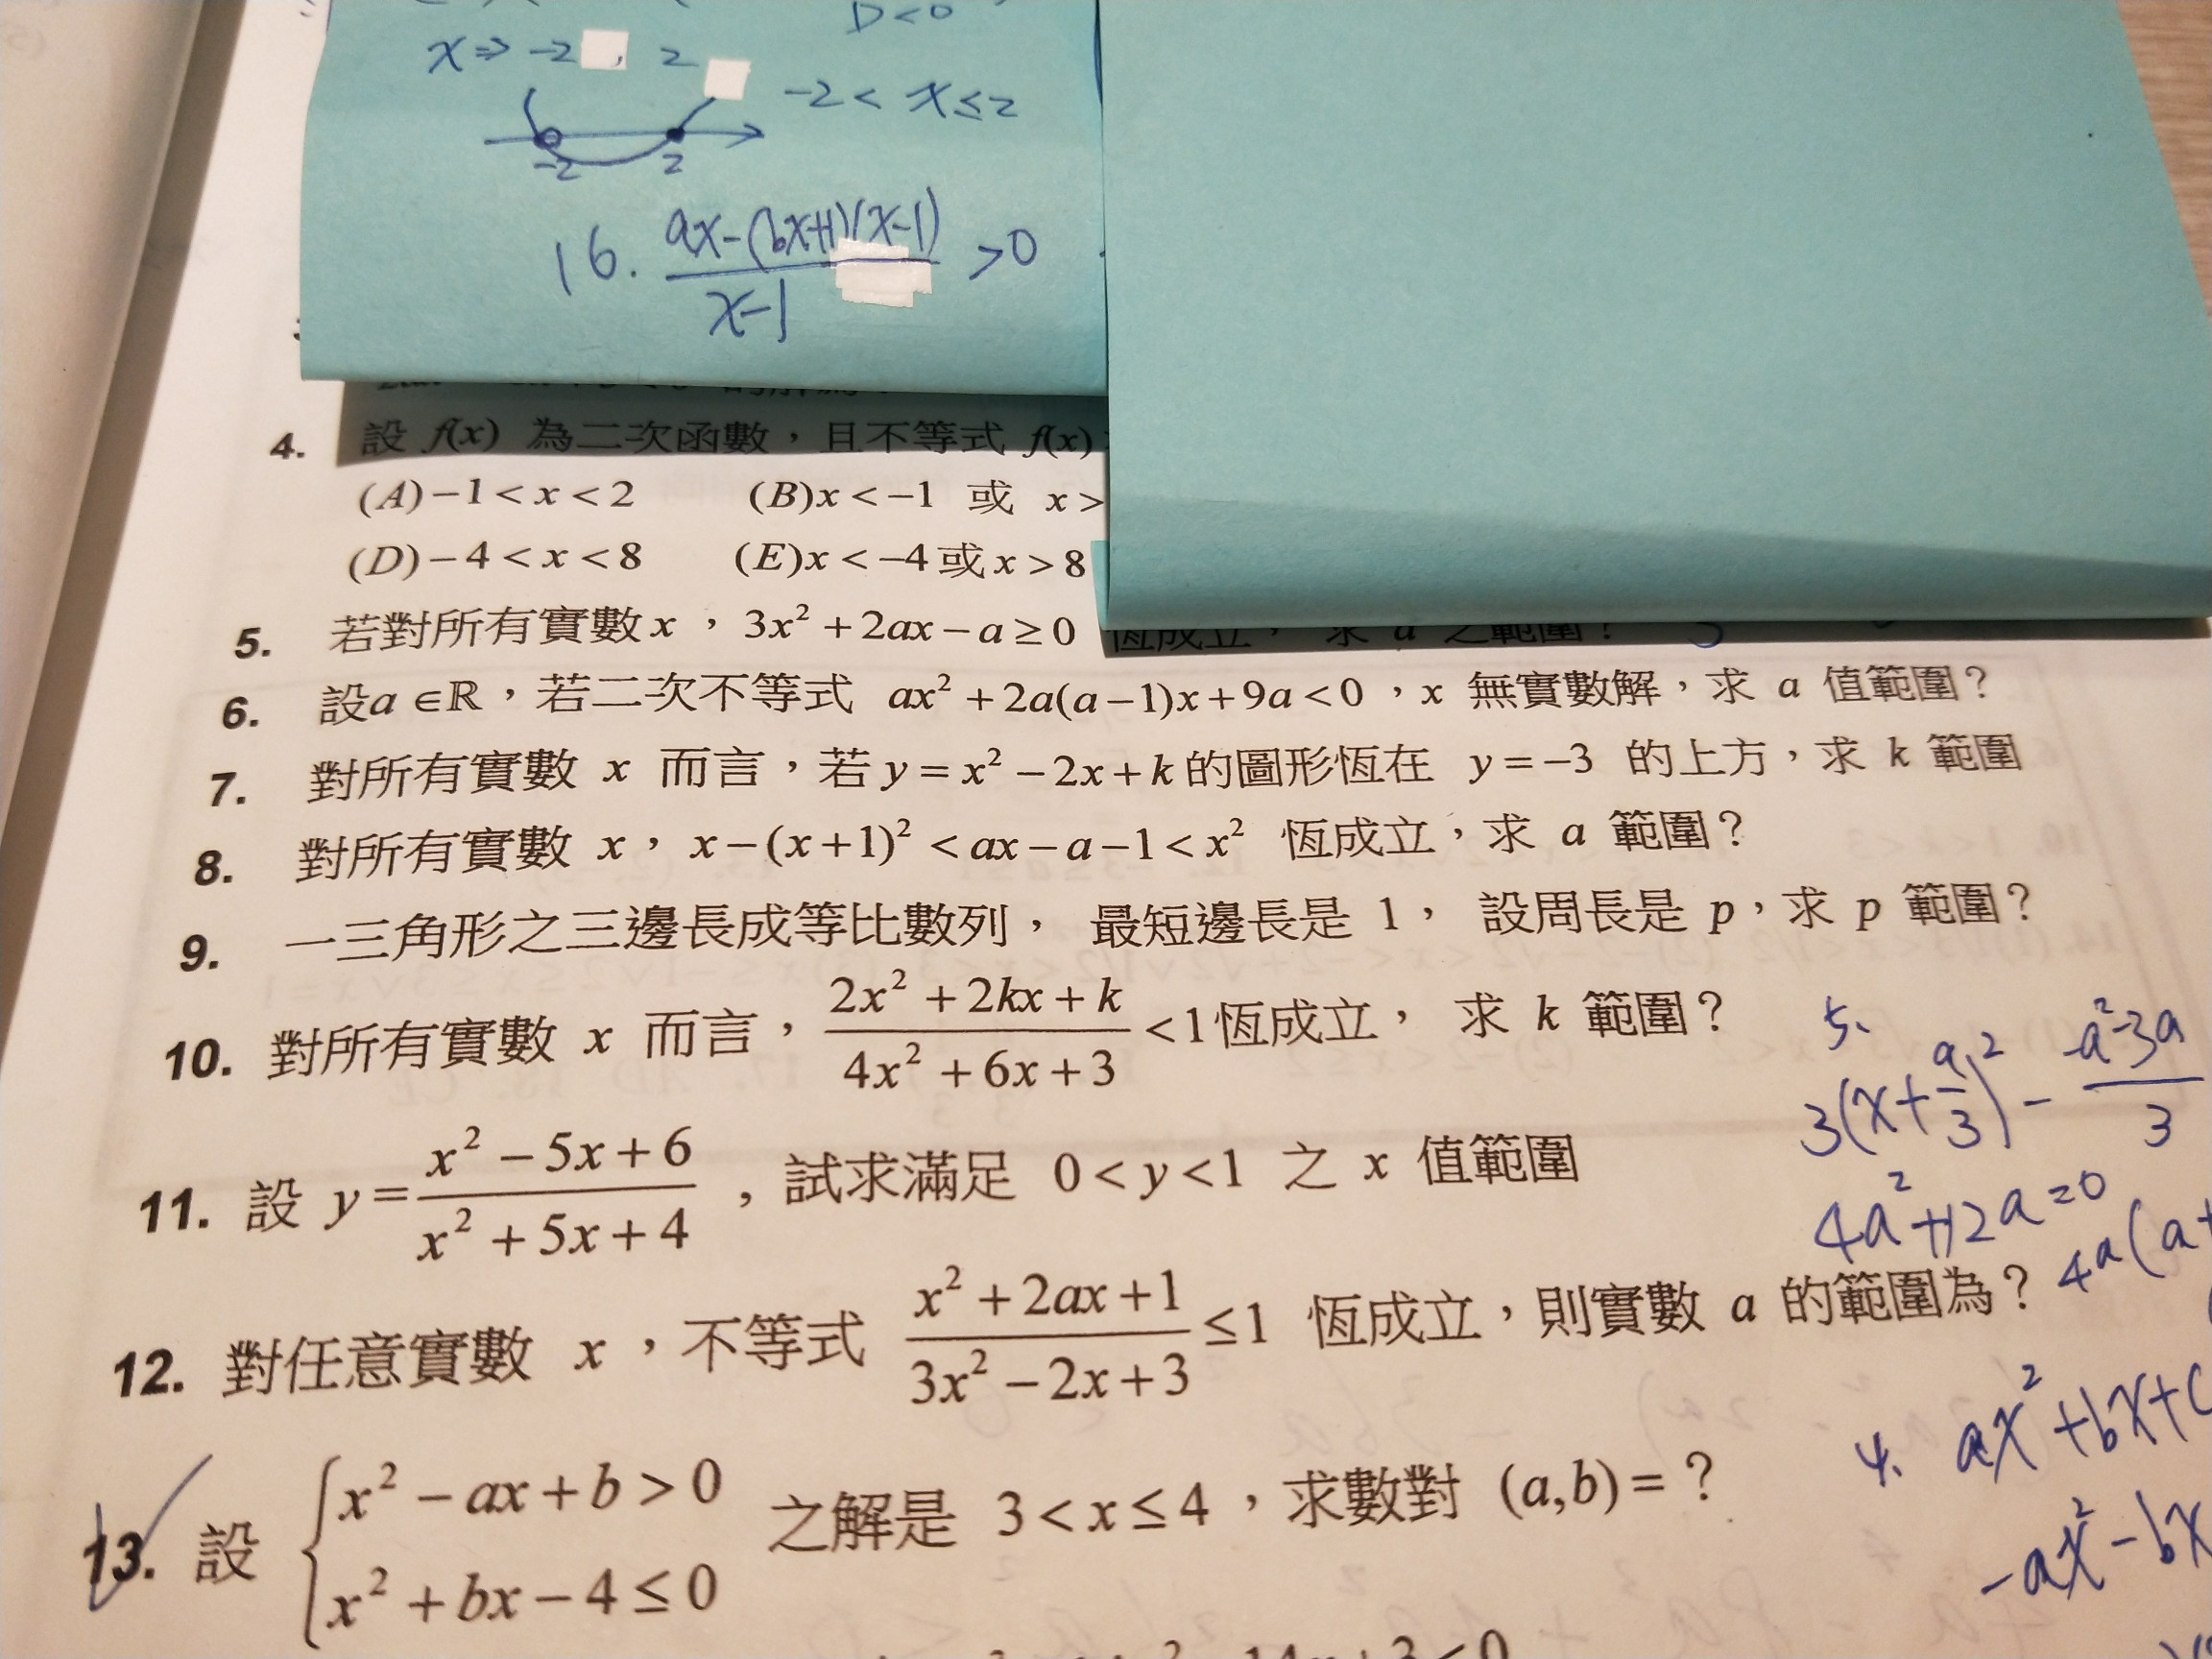 D<0
x⇒ -2 , 2
-2 < x ≤ 2
-2 2
16. \frac{ax-(bx+1)(x-1)}{x-1} >0
4. 設 f(x) 為二次函數,且不等式 f(x)
(A)−1<x<2 (B)x<−1 或 x>
(D)−4<x<8 (E)x<−4或x>8
5. 若對所有實數x,3x²+2ax−a≥0 恆成立,求 a 之範圍?
6. 設a∈ℝ,若二次不等式 ax²+2a(a−1)x+9a<0,x 無實數解,求 a 值範圍?
7. 對所有實數 x 而言,若y=x²−2x+k的圖形恆在 y=−3 的上方,求 k 範圍
8. 對所有實數 x,x−(x+1)²<ax−a−1<x² 恆成立,求 a 範圍?
9. 一三角形之三邊長成等比數列, 最短邊長是 1, 設周長是 p,求 p 範圍?
10. 對所有實數 x 而言,\frac{2x²+2kx+k}{4x²+6x+3}<1恆成立, 求 k 範圍?
11. 設 y=\frac{x²−5x+6}{x²+5x+4},試求滿足 0<y<1 之 x 值範圍
12. 對任意實數 x,不等式 \frac{x²+2ax+1}{3x²−2x+3}≤1 恆成立,則實數 a 的範圍為?
13. 設 {x²−ax+b>0
x²+bx−4≤0 之解是 3<x≤4,求數對 (a,b)=?
5、
3(x+\frac{a}{3})² - \frac{-a²-3a}{3}
4a²+12a=0
4a(a+
4、 ax²+bx+c
-ax²-bx